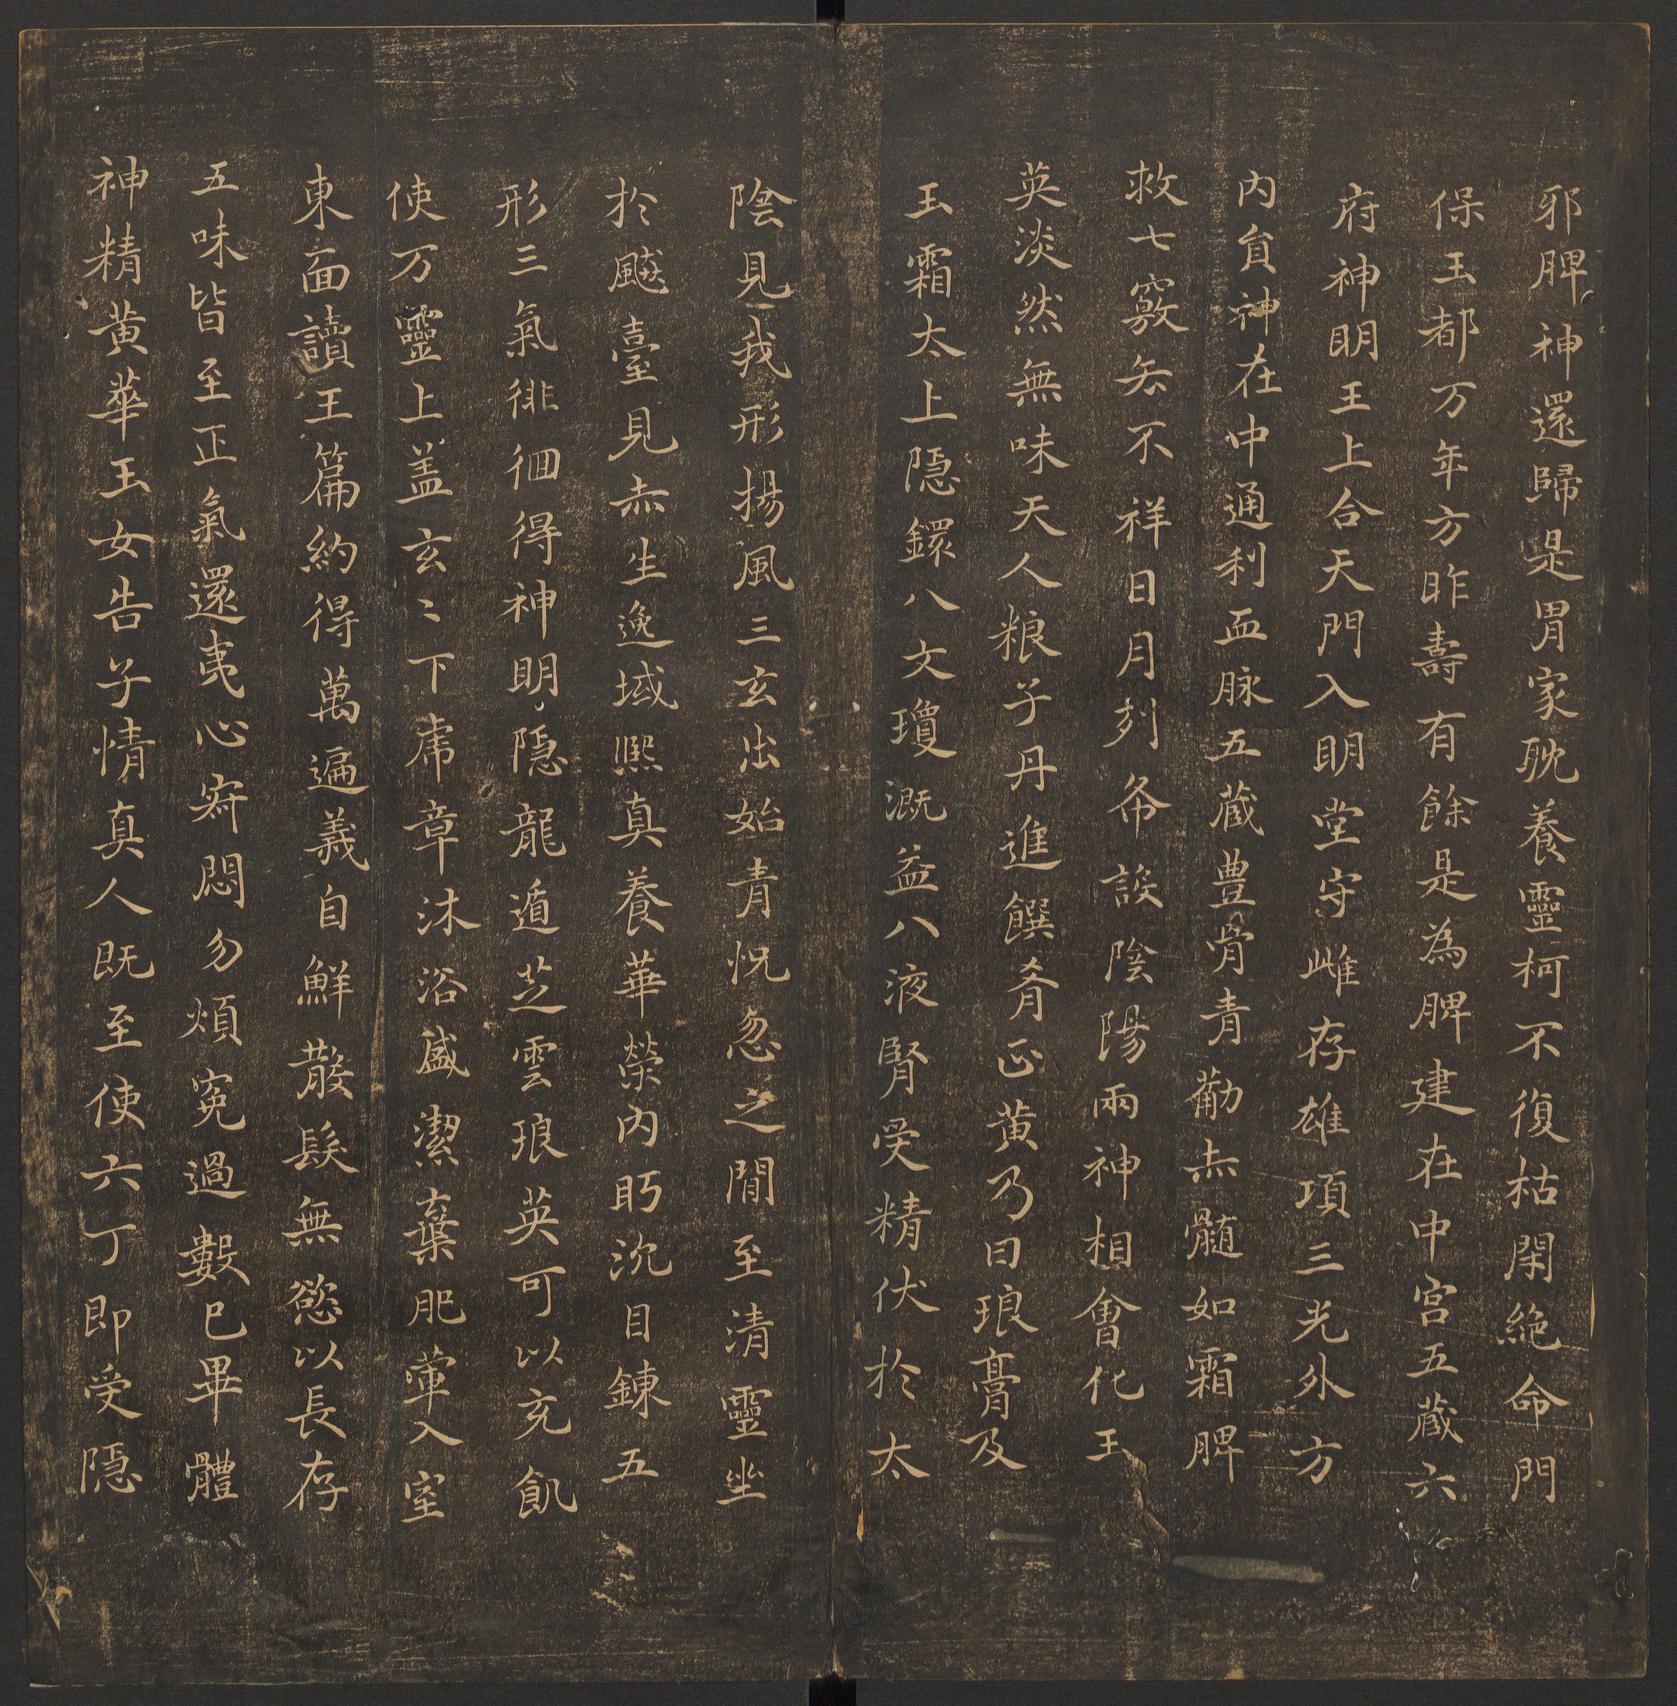 邪脾神還歸是胃家耽養靈柯不復枯閉絕命門
保玉都万年方昨壽有餘是為脾建在中宮五藏六
府神明王上合天門入明堂守雌存雄項三光外方
內貟神在中通利血脉五藏豊骨青薊赤髓如霜脾
救七竅去不祥日月列布設陰陽兩神相會化玉
英淡然無味天人粮子丹進饌肴正黃乃曰琅膏及
玉霜太上隱鐶八文瓊溉益八液腎受精伏於太
陰見我形揚風三玄出始青怳忽之間至清靈坐
於飈臺見赤生逸域熙真養華榮內盻沉目鍊五
形三氣徘徊得神明隱龍遁芝雲琅英可以充飢
使万靈上盖玄〻下席章沐浴盛潔棄肥葷入室
東面讀玉篇約得萬遍義自鮮散髮無慾以長存
五味皆至正氣還夷心寂悶勿煩寃過數已畢體
神精黃華玉女告子情真人既至使六丁即受隱